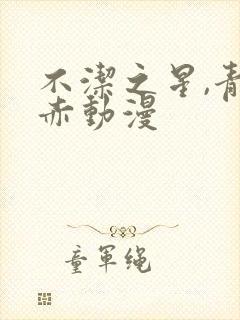 不潔之星,青
赤動漫
童軍绳